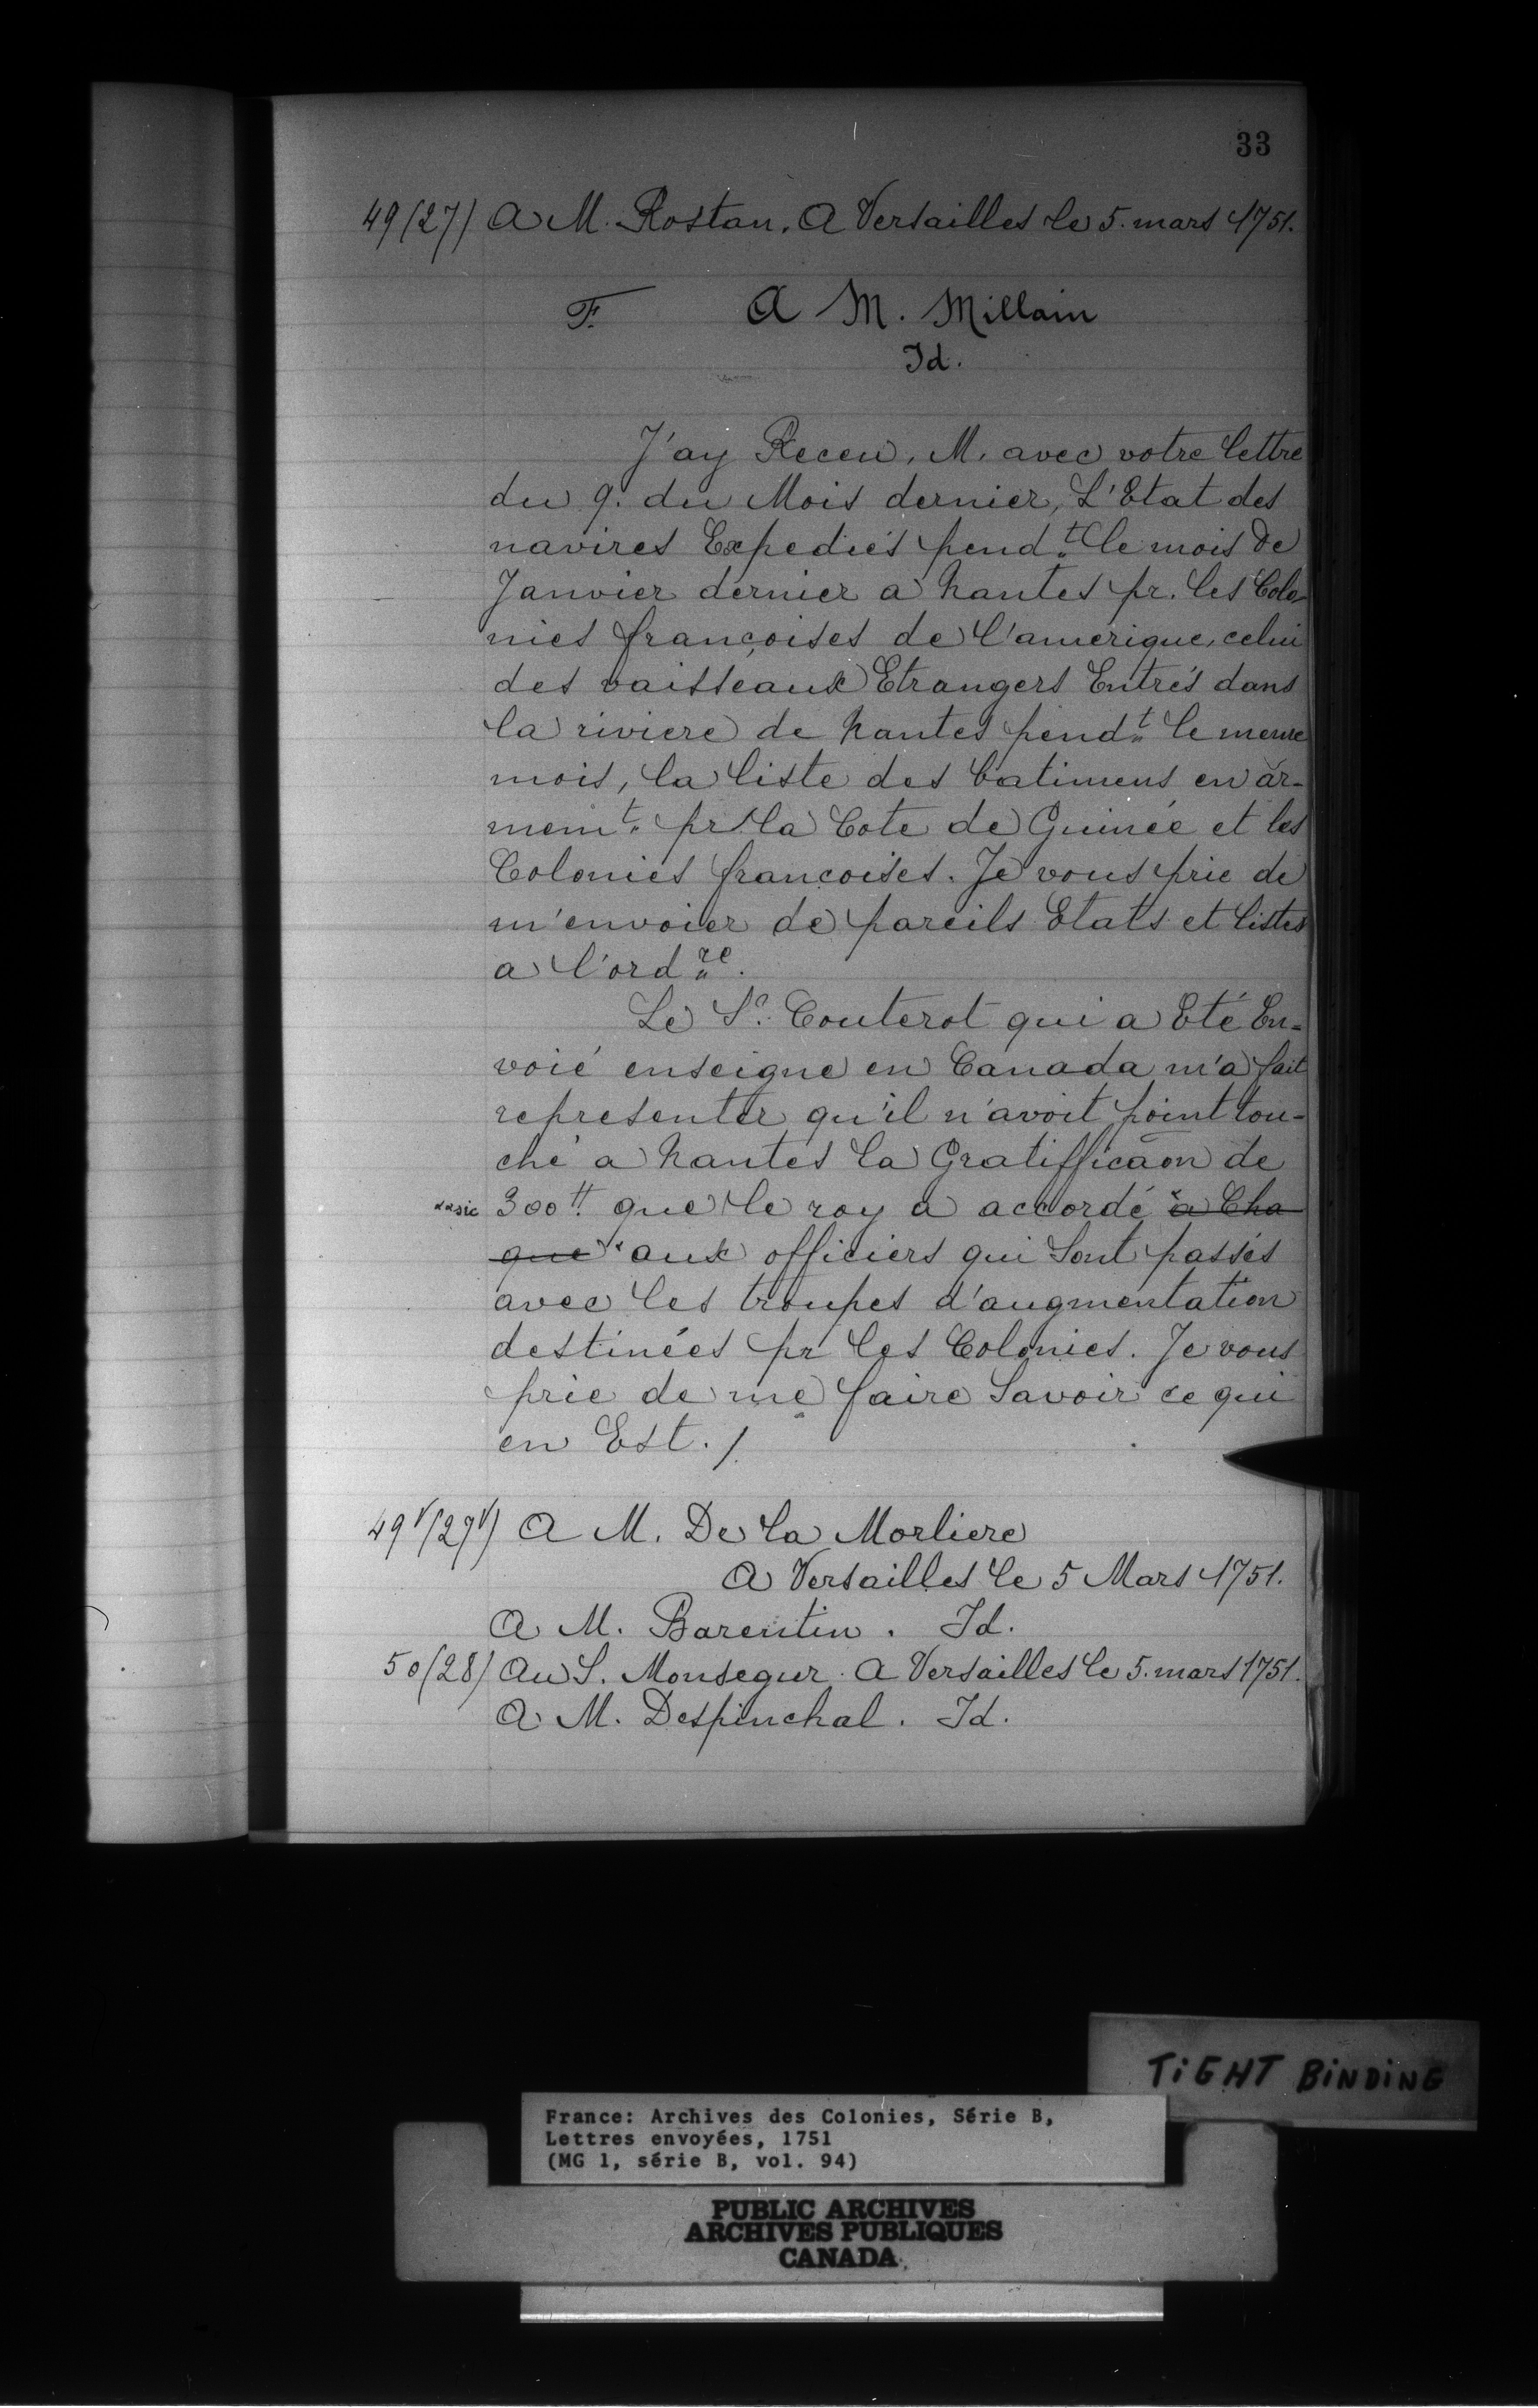 33
49(27) A M. Rostan. A Versailles le 5. mars 1751.
F. A M. Millain
Id.
J'ay Receu, M. avec votre lettre
du 9. du Mois dernier, L'Etat des
navires Expediés pendt. le mois de
Janvier dernier a Nantes pr. les Colo-
nies françoises de l'amerique, celui
des vaisseaux Etrangers Entrés dans
la riviere de Nantes pendt. le meme
mois, la liste des batimens en ar-
memt. pr la Cote de Guinée et les
Colonies francoises. Je vous prie de
m'envoier de pareils Etats et listes
a l'ordre.
Le Sr. Couterot qui a Eté En-
voié enseigne en Canada m'a fait
representer qu'il n'avoit point tou-
ché a Nantes la Gratifficaon de
xxsic 300tt. que le roy a accordé x a Cha
que x aux officiers qui Sont passés
avec les troupes d'augmentation
destinées pr les Colonies. Je vous
prie de me faire Savoir ce qui
en Est. /.
49v(27v) A M. De la Morliere
A Versailles le 5 Mars 1751.
A M. Barentin. Id.
50(28) Au S. Monsegur. A Versailles le 5. mars 1751.
A M. Despinchal. Id.
TiGHT BiNDiNG
France: Archives des Colonies, Série B,
Lettres envoyées, 1751
(MG 1, série B, vol. 94)
PUBLIC ARCHIVES
ARCHIVES PUBLIQUES
CANADA